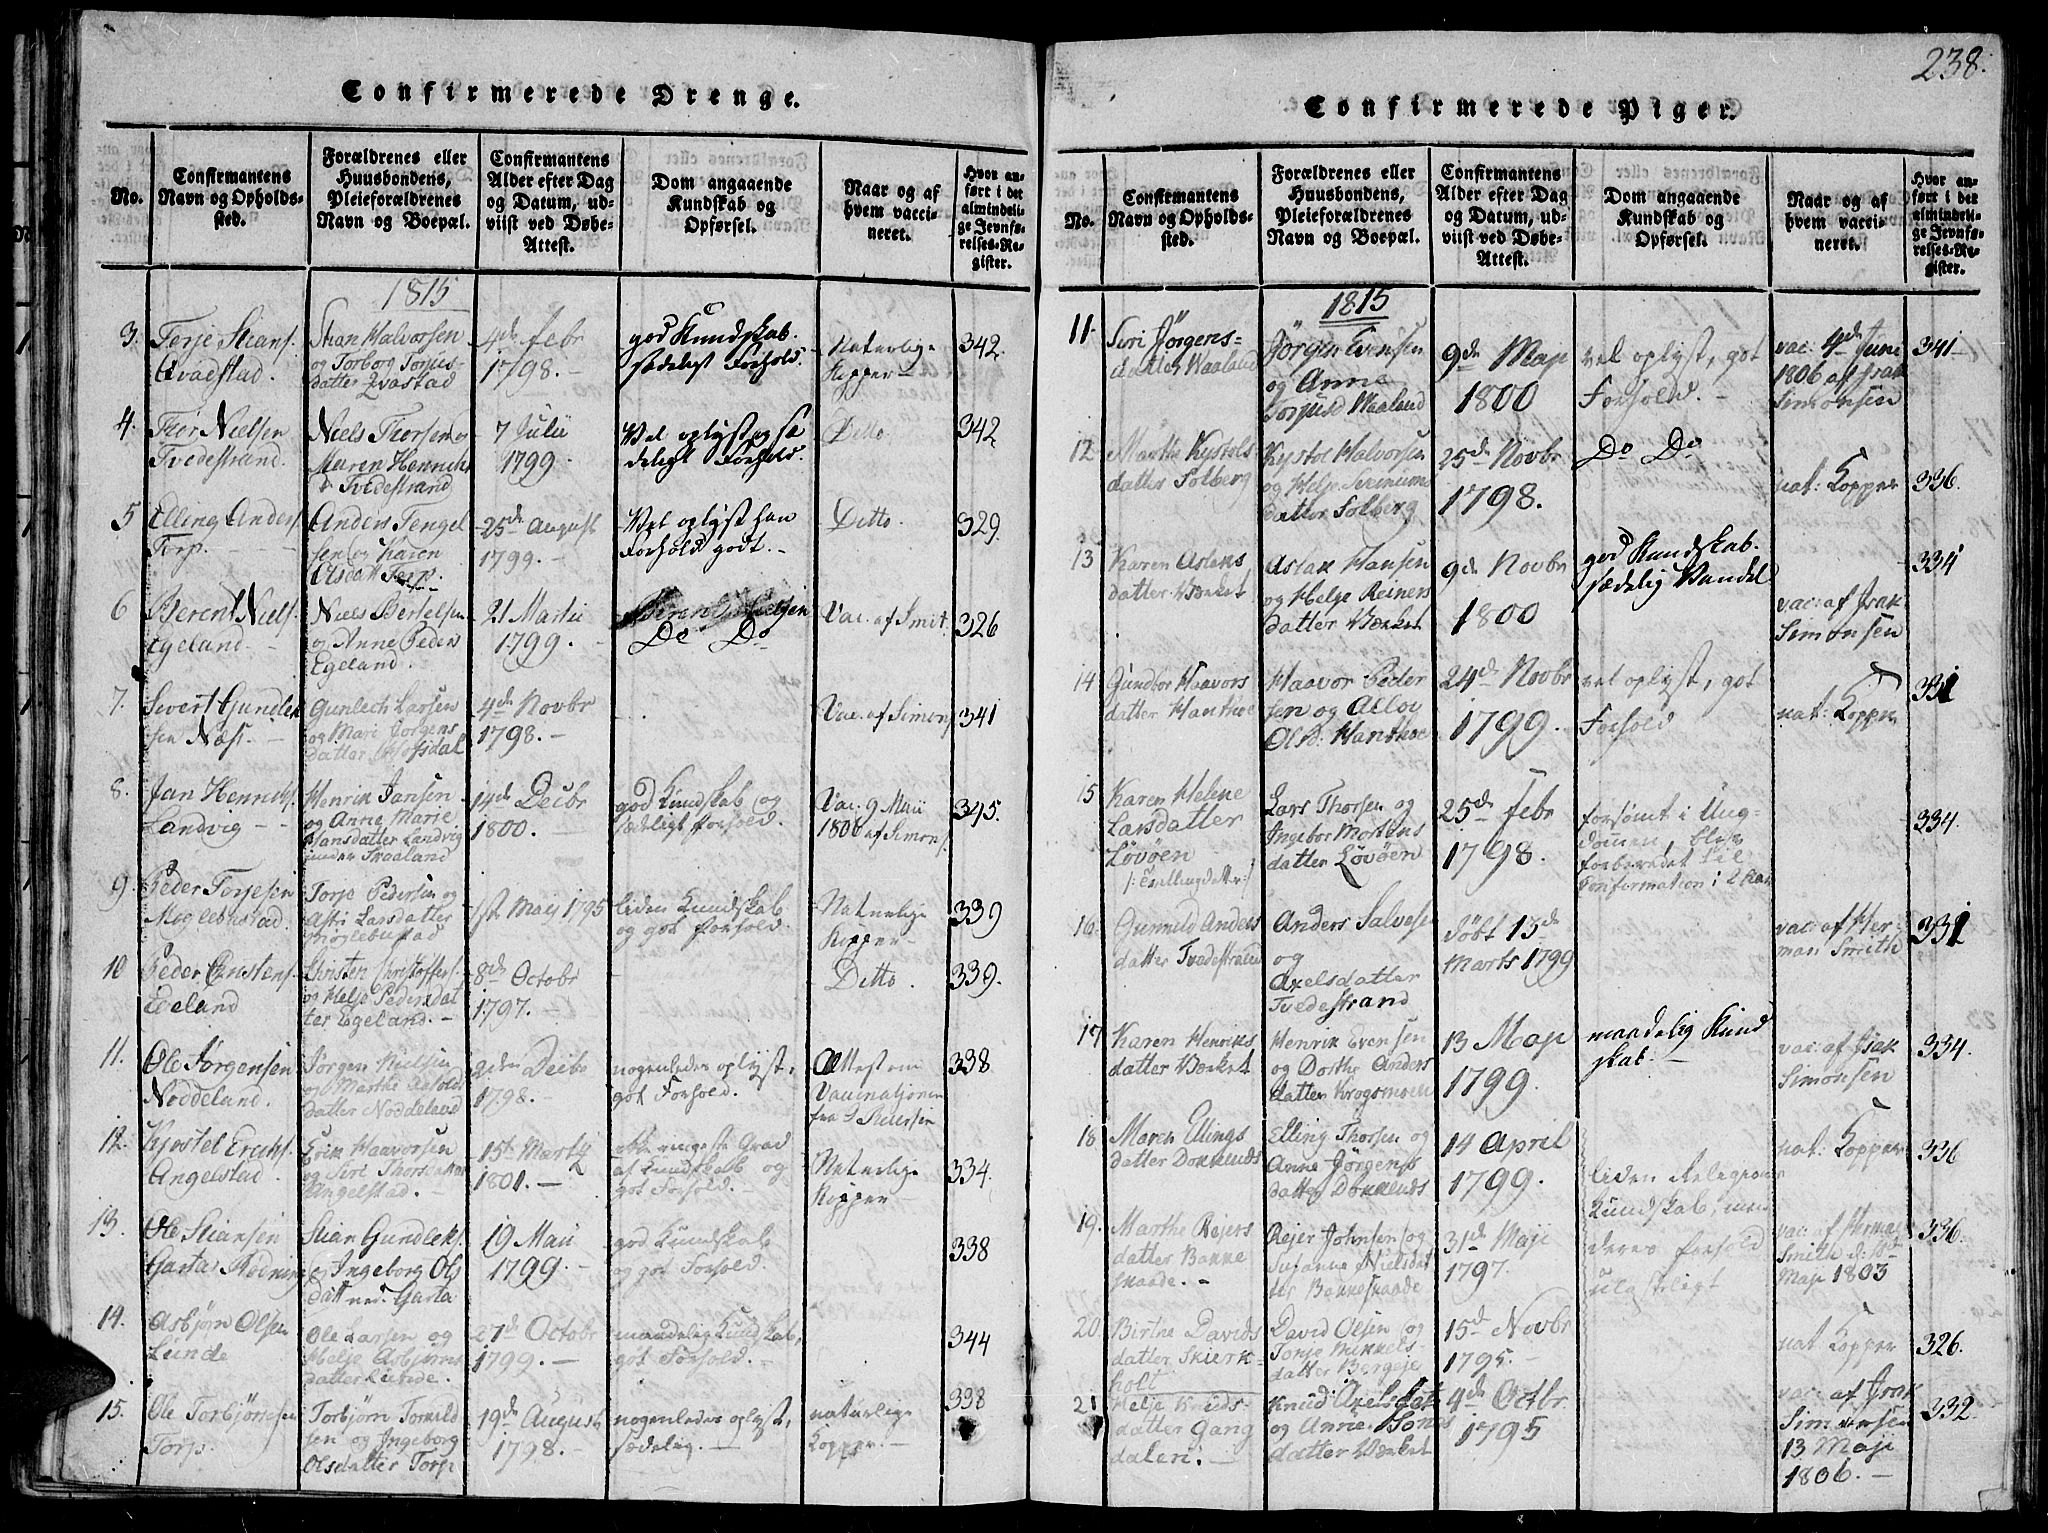 238.
Confirmerede Drenge.
No.
Confirmantens
Navn og Opholds-
sted.
Forældrenes eller
Huusbondens,
Pleieforældrenes
Navn og Boepæl.
Confirmantens
Alder efter Dag
og Datum, ud-
viist ved Døbe-
Attest.
Dom angaaende
Kundskab og
Opførsel.
Naar og af
hvem vacci-
neret.
Hvor an-
ført i det
almindeli-
ge Jevnfø-
relses-Re-
gister.
1815
3.
Terje Stians.
Qvaestad.
Stian Halvorsen
og Torborg Torjus-
datter Qvastad
4de Febr
1798. -
god Kundskab.
sædeligt Forhold.
Naturlige
Kopper -
342.
4.
Thor Nielsen
Tvedestrand.
Niels Thorsen og
Maren Henrichs
Tvedestrand
7 Julii
1799.
Vel oplyst og sæ
deligt Forhold.
Ditto
342
5
Elling Anders.
Torp. - -
Anders Tengel
sen og Karen
Olsdatt Torp.
25de August
1799. -
Vel oplyst han
Forhold godt. -
Ditto.
329.
6
Berent Niels.
Egeland. -
Niels Bertelsen
og Anne Peders
Egeland.
21 Martii
1799. -
Do Do
Vac. af Smit.
326
7.
Sivert Gundlek
sen Næs. -
Gunlech Larsen
og Mari Jørgens
datter
4de Novbr
1798. -
Vac. af Simons.
341
8.
Jan Henrichs.
Landvig - -
Henrik Jansen
og Anne Marie
Hansdatter Landvig
under Fraaland
14de Decbr
1800. -
god Kundskab og
sædeligt Forhold.
Vac. 9 Maii
1806 af Simons.
345.
9.
Peder Torjesen
Møglebustad.
Torje Pedersen og
Astri Larsdatter
Møglebustad
1ste Maij 1795
liden Kundskab
og got Forhold.
Naturlige
Kopper -
339
10
Peder Christens.
Egeland
Christen Christoffers.
og Helje Pedersdat
ter Egeland. -
8de Octobr
1797. -
Ditto.
339.
11.
Ole Jørgensen
Noddeland.
Jørgen Nielsen
og Marthe
datter Noddeland
9den Decbr
1798. -
nogenledes oplyst,
got Forhold. -
Attest om
Vaccinationen
fra
338
12.
Kjøstel Erichs.
Angelstad.
Erik Haavorsen
og Siri Thorsdatter
Angelstad. -
15de Marty
1801. -
ikke ringeste Grad
af Kundskab og
got Forhold. -
Naturlige
Kopper
334.
13.
Ole Stiansen
Garta
Stian Gundleks.
og Ingeborg Ols
datt ned. Garta
19 Maii
1799. -
god Kundskab
og got Forhold.
338
14.
Asbjørn Olsen
Lunde
Ole Larsen og
Helje Asbjørns
datter Lunde.
27de Octobr
1799. -
maadelig Kundskab,
got Forhold. -
344
15.
Ole Torbjørnsen
Torp.
Torbjørn
sen og Ingeborg
Olsdatter Torp
19de August
1798. -
nogenledes oplyst,
sædelig. -
naturlige
Kopper. -
338
Confirmerede Piger.
No.
Confirmantens
Navn og Opholds-
sted.
Forældrenes eller
Huusbondens,
Pleieforældrenes
Navn og Boepæl.
Confirmantens
Alder efter Dag
og Datum, ud-
viist ved Døbe-
Attest.
Dom angaaende
Kundskab og
Opførsel.
Naar og af
hvem vacci-
neret.
Hvor an-
ført i det
almindeli-
ge Jevnfø-
relses-Re-
gister.
1815
11.
Siri Jørgens-
datter Waaland
Jørgen Evensen
og Anne
Torjusd Waaland
9de Maji
1800
vel oplyst, got
Forhold. -
vac. 4de Juni
1806 af Isak
Simonsen
341
12
Marthe Kystols
datter Solberg
Kystol Halvorsen
og Helje
datter Solberg
25de Novbr
1798.
Do Do
nat: Kopper
336.
13
Karen Aslaks
datter Værket
Aslak Hansen
og Helje Reiners
datter Værket
9de Novbr
1800
god Kundskab.
sædelig Vandel
vac: af Isak
Simonsen
334
14
Gundbor Haavors
datter Hanthoe
Haavor Peder
sen og
Olsd: Hanthoe
24de Novbr
1799.
vel oplyst, got
Forhold
nat: Kopper
331
15
Karen Helene
Larsdatter
Løvøen
/: Tvillingdatter:/
Lars Thorsen og
Ingebor Mortens
datter Løvøen
25de Febr
1798.
forsømt i Ung-
dommen, blev
forberedet til
Confirmation i 2
334.
16.
Gunnild Anders
datter Tvedestrand
Anders Salvesen
og
Axelsdatter
Tvedestrand
Døbt 13de
Marts 1799
vac: af Her-
man Smith
331
17
Karen Henriks
datter Værket
Henrik Evensen
og Dorthe Anders
datter Krogsmoen
13 Maji
1799.
maadelig Kund
skab. -
vac: af Isak
Simonsen
334.
18
Maren Ellings
datter Dokkeuds
Elling Thorsen og
Anne Jørgens
datter Dokkeuds
14 April
1799.
liden Religions
Kundskab, men
deres Forhold
ulasteligt
nat: Kopper
336
19.
Marthe Rejers
datter Bakke
skaade. -
Rejer Johnsen og
Susanne Nielsdat
ter Bakkeskaade
31de Maji
1797.
vac: af Herman
Smith d: 18de
Maji 1803
336.
20
Birthe Davids
datter Skierk-
holt
David Olsen og
Tonje Mikkels-
datter Bergeje
15de Novbr
1795. -
nat Kopper
326.
21
Helje Knuds-
datter Gang
dalen: -
Knud Axelsdat
og Anne Tons
datter Værket
4de Octbr
1795
vac: af Isak
Simonsen
13 Maji
1806. -
332.